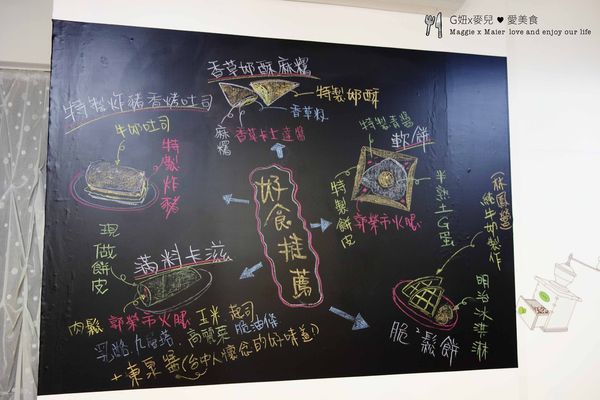 G妞x麥兒 ♥ 愛美食
Maggie x Maier love and enjoy our life
香草奶酥麻糬
特製奶酥
香草粒
麻糬
香草卡士達醬
特製炸豬香烤吐司
牛奶吐司
特製炸豬
特製青醬
軟餅
半熟土G蛋
特製餅皮
郭榮市火腿
好食推薦
滿料卡滋
現做餅皮
肉鬆 郭榮市火腿 玉米 起司
乳酪 九層塔 高麗菜 脆油條
+東泉醬(台中人懷念的好味道)
(林鳳營)
純牛奶製作
明治冰淇淋
脆2鬆餅